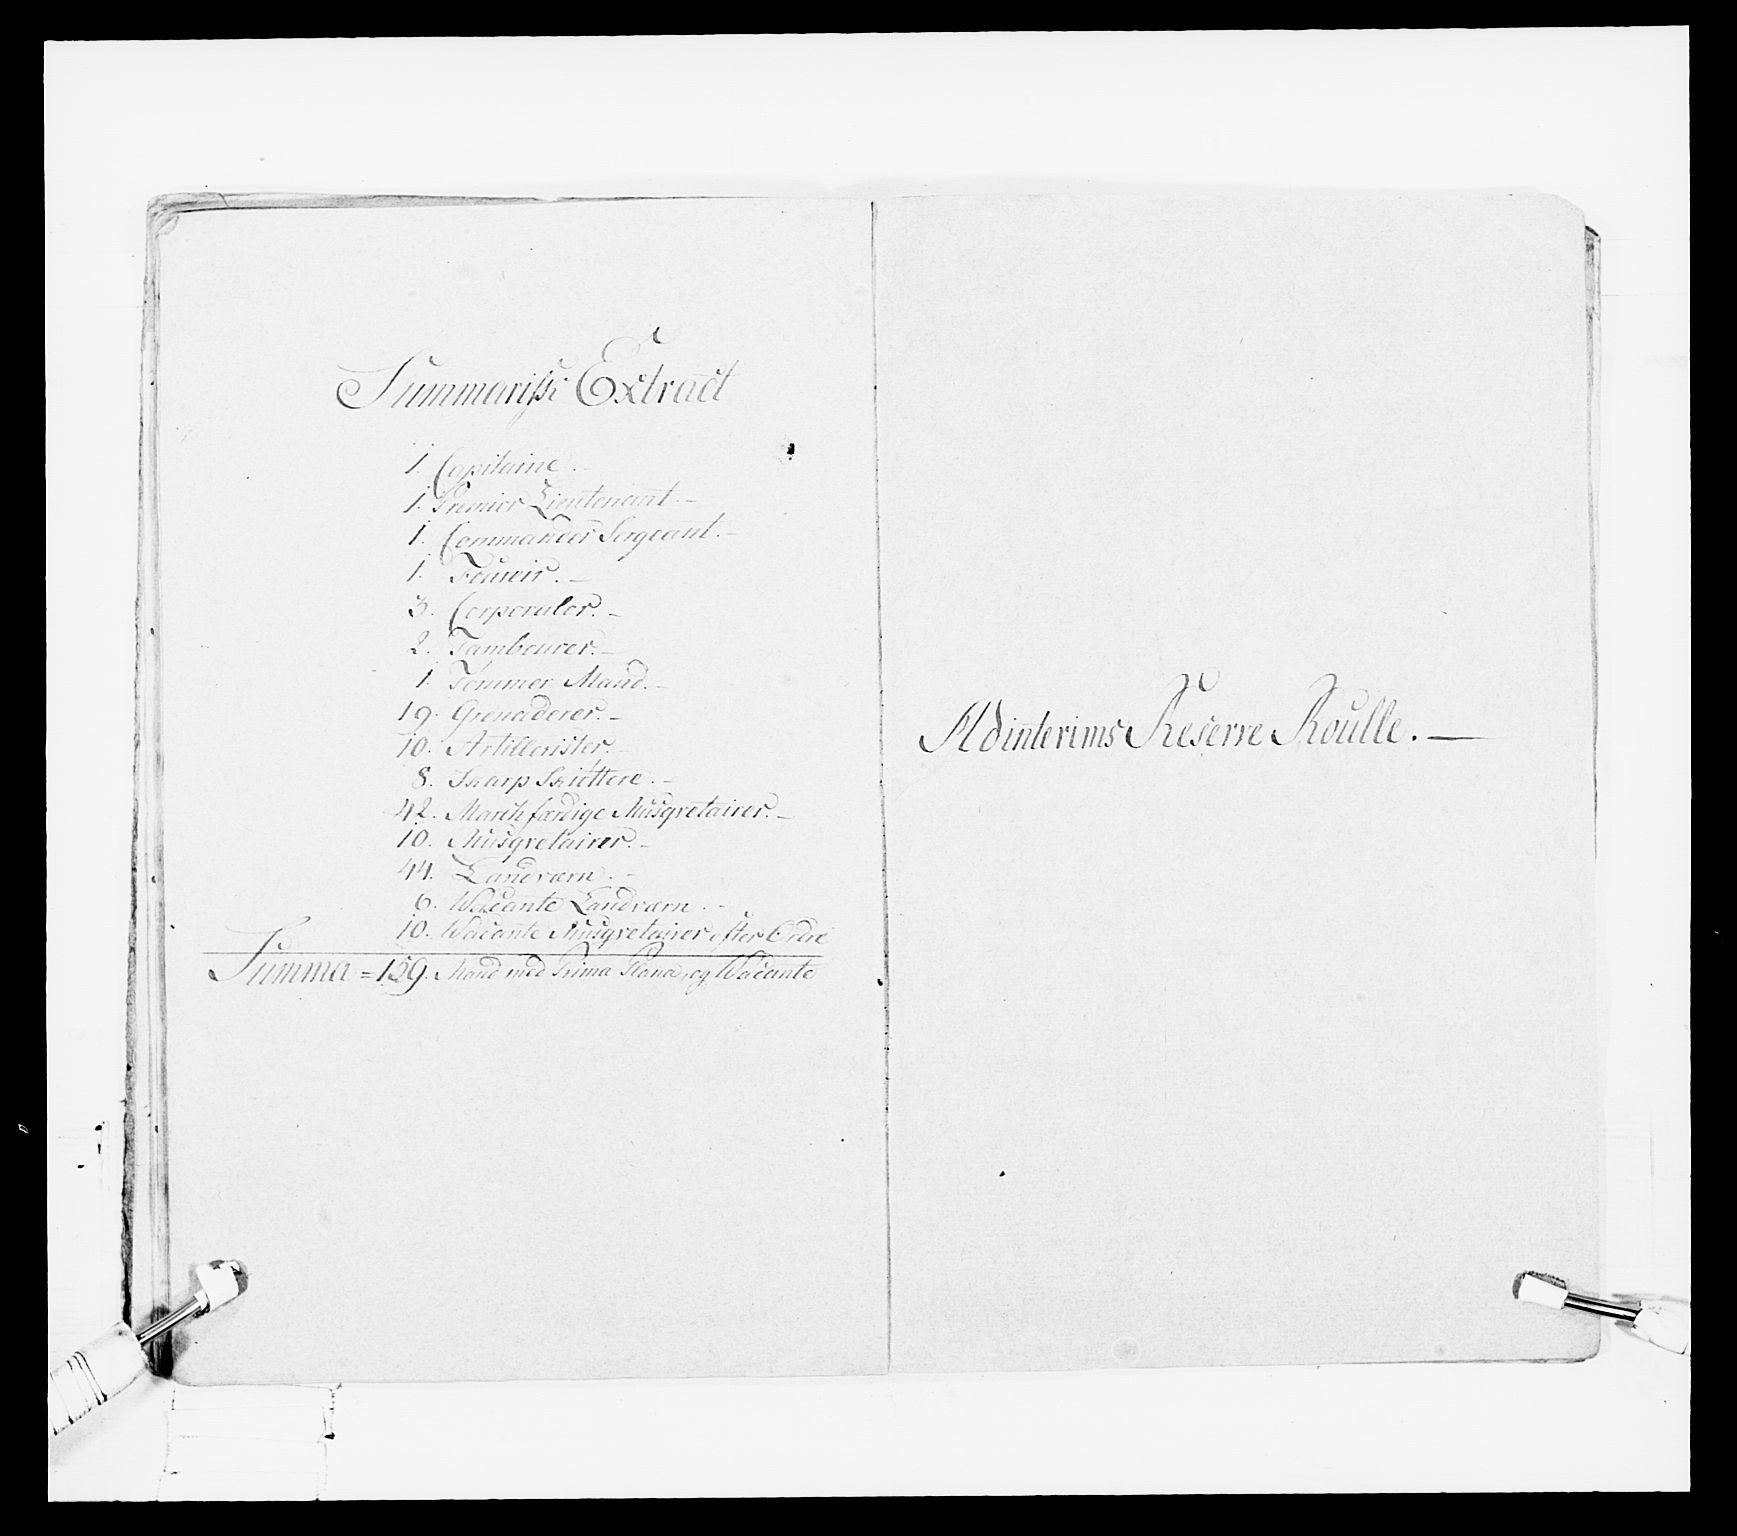 Summarisk Extract
1. Capitaine. -
1. Premier Lieutenant. -
1. Commander Sergeant. -
1. Fourir. -
3. Corporaler. -
2. Tambourer. -
1. Tømmer Mand. -
19. Grenaderer. -
10. Artillerister. -
8. Skarp Skiøttere. -
42. March færdige Musqvetairer. -
10. Musqvetairer. -
44. Landværn. -
6. Wacante Landværn. -
10. Wacante Musqvetairer efter Ordre
Summa = 159. Mand med Prima Plana, og Wacante
Adinterims Reserve Roulle. —